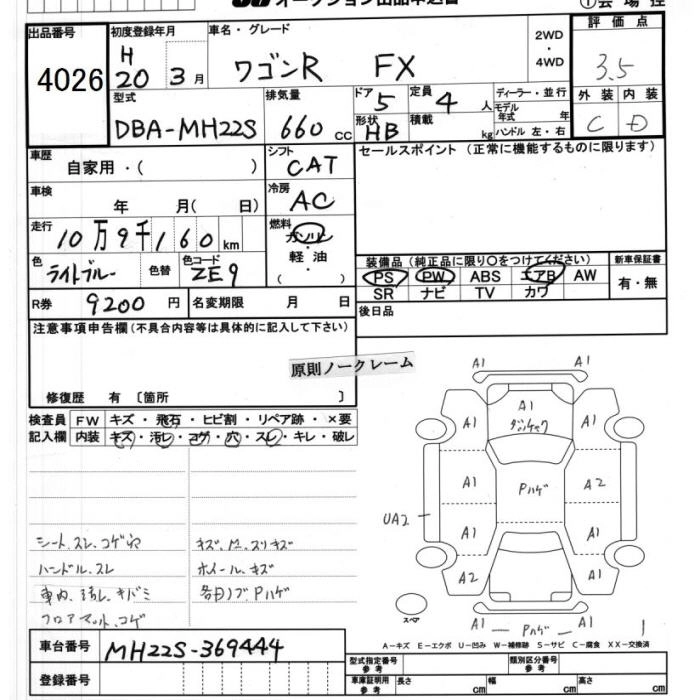 オークション出品申込書
①会場控
出品番号
4026
初度登録年月
H
20 3月
車名・グレード
ワゴンR FX
2WD
・
4WD
評価点
3.5
型式
DBA-MH22S
排気量
660 cc
ドア 5
定員 4 人
形状 HB
積載 kg
ディーラー・並行
モデル年式 年
ハンドル 左・右
外装 内装
C D
車歴
自家用・( )
シフト
CAT
セールスポイント(正常に機能するものに限ります)
車検
年 月( 日)
冷房
AC
走行
10万9千160km
燃料
ガソリン
・
軽油
・
( )
色
ライトブルー
色替
色コード
ZE9
装備品(純正品に限り〇をつけてください)
PS PW ABS エアB AW
SR ナビ TV カワ
新車保証書
有・無
R券 9200円
名変期限 月 日
後日品
注意事項申告欄(不具合内容等は具体的に記入して下さい)
原則ノークレーム
修復歴 有〔箇所 〕
検査員記入欄
FW キズ・飛石・ヒビ割・リペア跡・×要
内装 キズ・汚レ・コゲ・穴・スレ・キレ・破レ
シート、スレ、コゲ穴
ハンドル、スレ
車内、汚レ、キバミ
フロアマット、コゲ
キズ、凹、スリキズ
ホイール、キズ
各日ノブ、Pハゲ
A1 A1
A1 A1 A1
A1 Pハゲ A2
UA2
A1 A1
A2 A1
スペア
A1 Pハゲ A1
A-キズ E-エクボ U-凹み W-補修跡 S-サビ C-腐食 XX-交換済
車台番号 MH22S-369444
登録番号
型式指定番号 参考
類別区分番号 参考
車庫証明用 参考
長さ cm 幅 cm 高さ cm